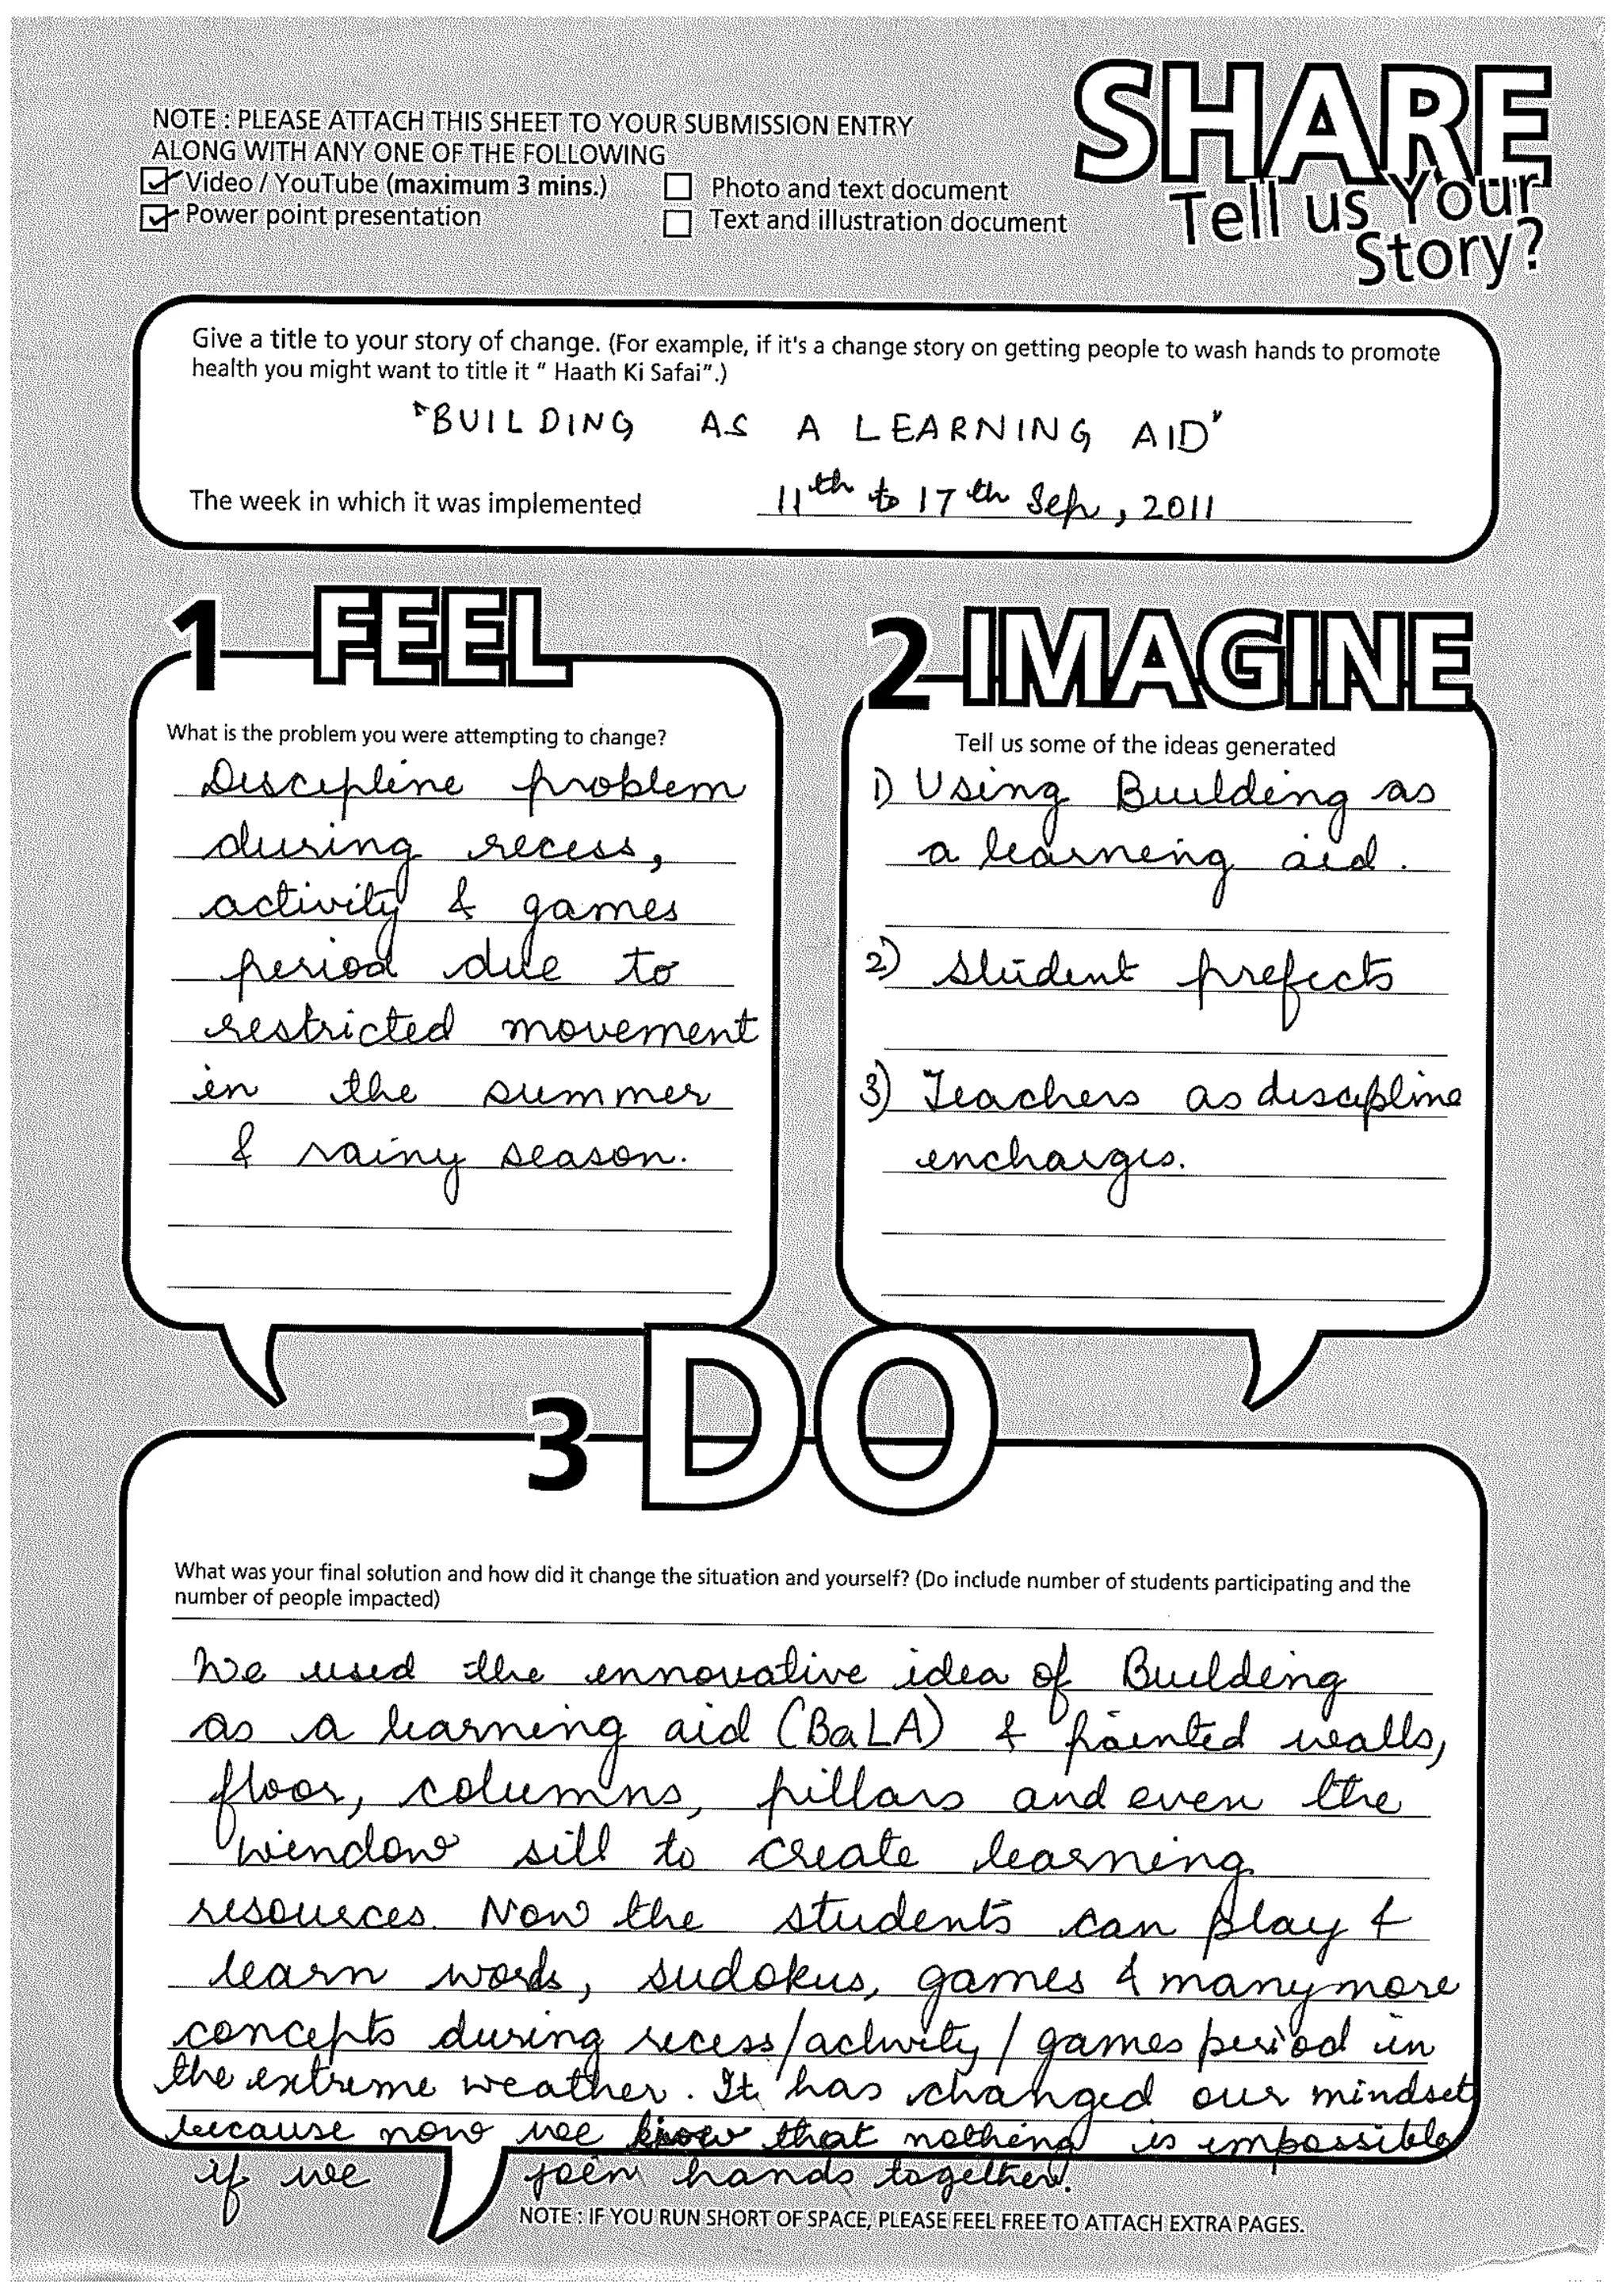 NOTE : PLEASE ATTACH THIS SHEET TO YOUR SUBMISSION ENTRY
ALONG WITH ANY ONE OF THE FOLLOWING
Video / YouTube (maximum 3 mins.)
Photo and text document
Power point presentation
Text and illustration document
SHARE
Tell us Your
Story?
Give a title to your story of change. (For example, if it's a change story on getting people to wash hands to promote
health you might want to title it " Haath Ki Safai".)
"BUILDING AS A LEARNING AID"
The week in which it was implemented 11th to 17th Sep, 2011
1 FEEL
What is the problem you were attempting to change?
Discipline problem
during recess,
activity & games
period due to
restricted movement
in the summer
& rainy season.
2 IMAGINE
Tell us some of the ideas generated
1) Using Building as
a learning aid.
2) Student prefects
3) Teachers as discipline
encharges.
3 DO
What was your final solution and how did it change the situation and yourself? (Do include number of students participating and the
number of people impacted)
We used the ennovative idea of Building
as a learning aid (BaLA) & painted walls,
floor, columns, pillars and even the
window sill to create learning
resources. Now the students can play &
learn words, sudokus, games & many more
concepts during recess/activity/games period in
the extreme weather. It has changed our mindset
because now we know that nothing is impossible
if we join hands together!
NOTE : IF YOU RUN SHORT OF SPACE, PLEASE FEEL FREE TO ATTACH EXTRA PAGES.